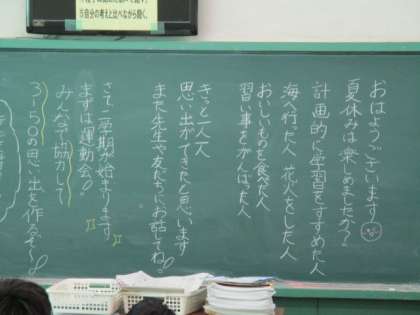 ⑤自分の考えと比べながら聞く。
おはようございます
夏休みは楽しめましたか？
計画的に学習をすすめた人
海へ行った人 花火をした人
おいしいものを食べた人
習い事をがんばった人
きっと一人一人
思い出ができたと思います
また先生や友だちにお話してね!
さて二学期が始まります
まずは運動会!
みんなで協力して
3-5〇の思い出を作るぞ〜!